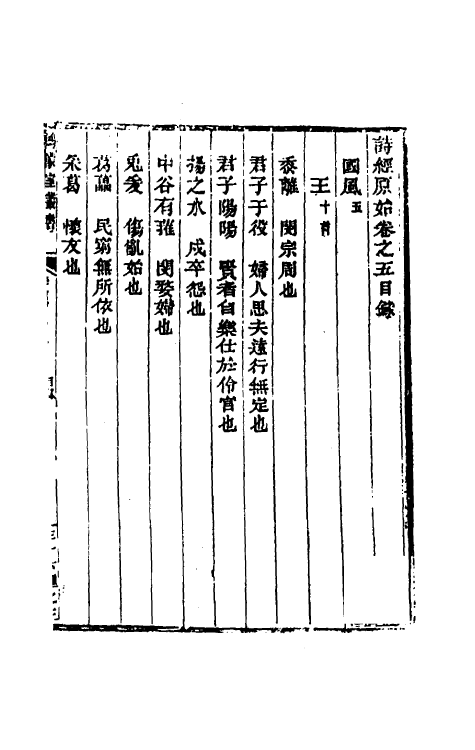 詩經原始卷之五目錄
國風 五
王 十首
黍離 閔宗周也
君子于役 婦人思夫遠行無定也
君子陽陽 賢者自樂仕於伶官也
揚之水 戍卒怨也
中谷有蓷 閔嫠婦也
兔爰 傷亂始也
葛藟 民窮無所依也
采葛 懷友也